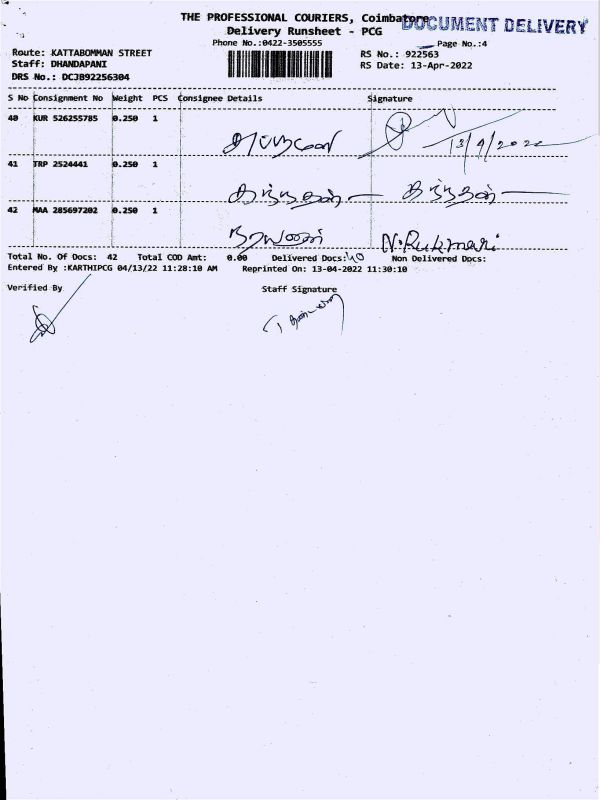 THE PROFESSIONAL COURIERS, Coimbatore
DOCUMENT DELIVERY
Delivery Runsheet - PCG
Phone No.:0422-3505555
Page No.:4
Route: KATTABOMMAN STREET
RS No.: 922563
Staff: DHANDAPANI
RS Date: 13-Apr-2022
DRS No.: DCJB92256304
S No Consignment No Weight PCS Consignee Details Signature
40 KUR 526255785 0.250 1
13/4/2022
41 TRP 2524441 0.250 1
42 MAA 285697202 0.250 1 N.Rukmari
Total No. Of Docs: 42 Total COD Amt: 0.00 Delivered Docs: 40 Non Delivered Docs:
Entered By :KARTHIPCG 04/13/22 11:28:10 AM Reprinted On: 13-04-2022 11:30:10
Verified By Staff Signature